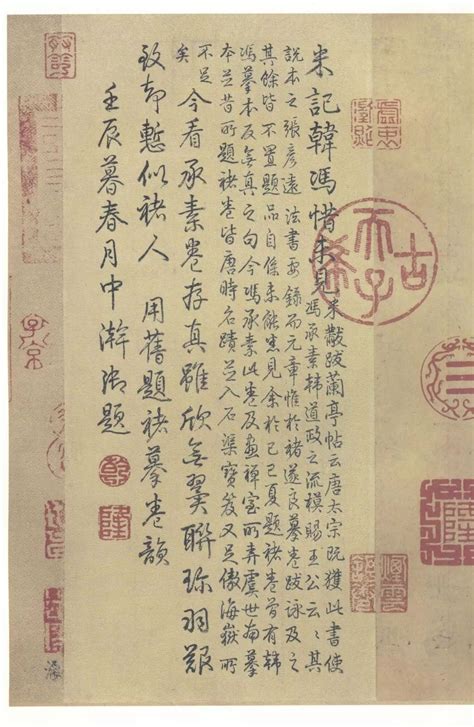 米記韓馮惜未見米黻跋蘭亭帖云唐太宗既獲此書使
馮承素韓道政之流模賜王公云云其
說本之張彥遠法書要錄而元章惟於褚遂良摹卷跋詠及之
其餘皆不置題品自係未能悉見余於己巳夏題褚卷曾有韓
馮摹本反無真之句今馮承素此卷及畫禪室所弆虞世南摹
本並昔所題褚卷皆唐時名蹟並入石渠寶笈又足傲海嶽所
不足
矣今看承素卷存真雖欣無翼聯珍羽艱
致却慙似褚人用舊題褚摹卷韻
壬辰暮春月中澣御題
乾
隆
古希天子
子京